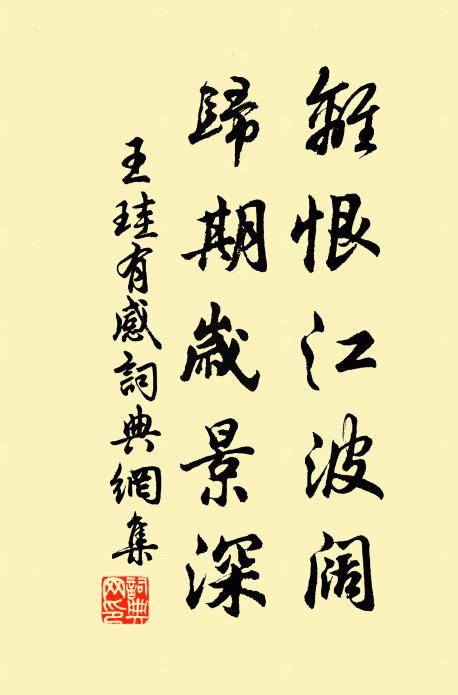 離恨江波闊
歸期歲景深
王珪有感詞典網集
詞典网印